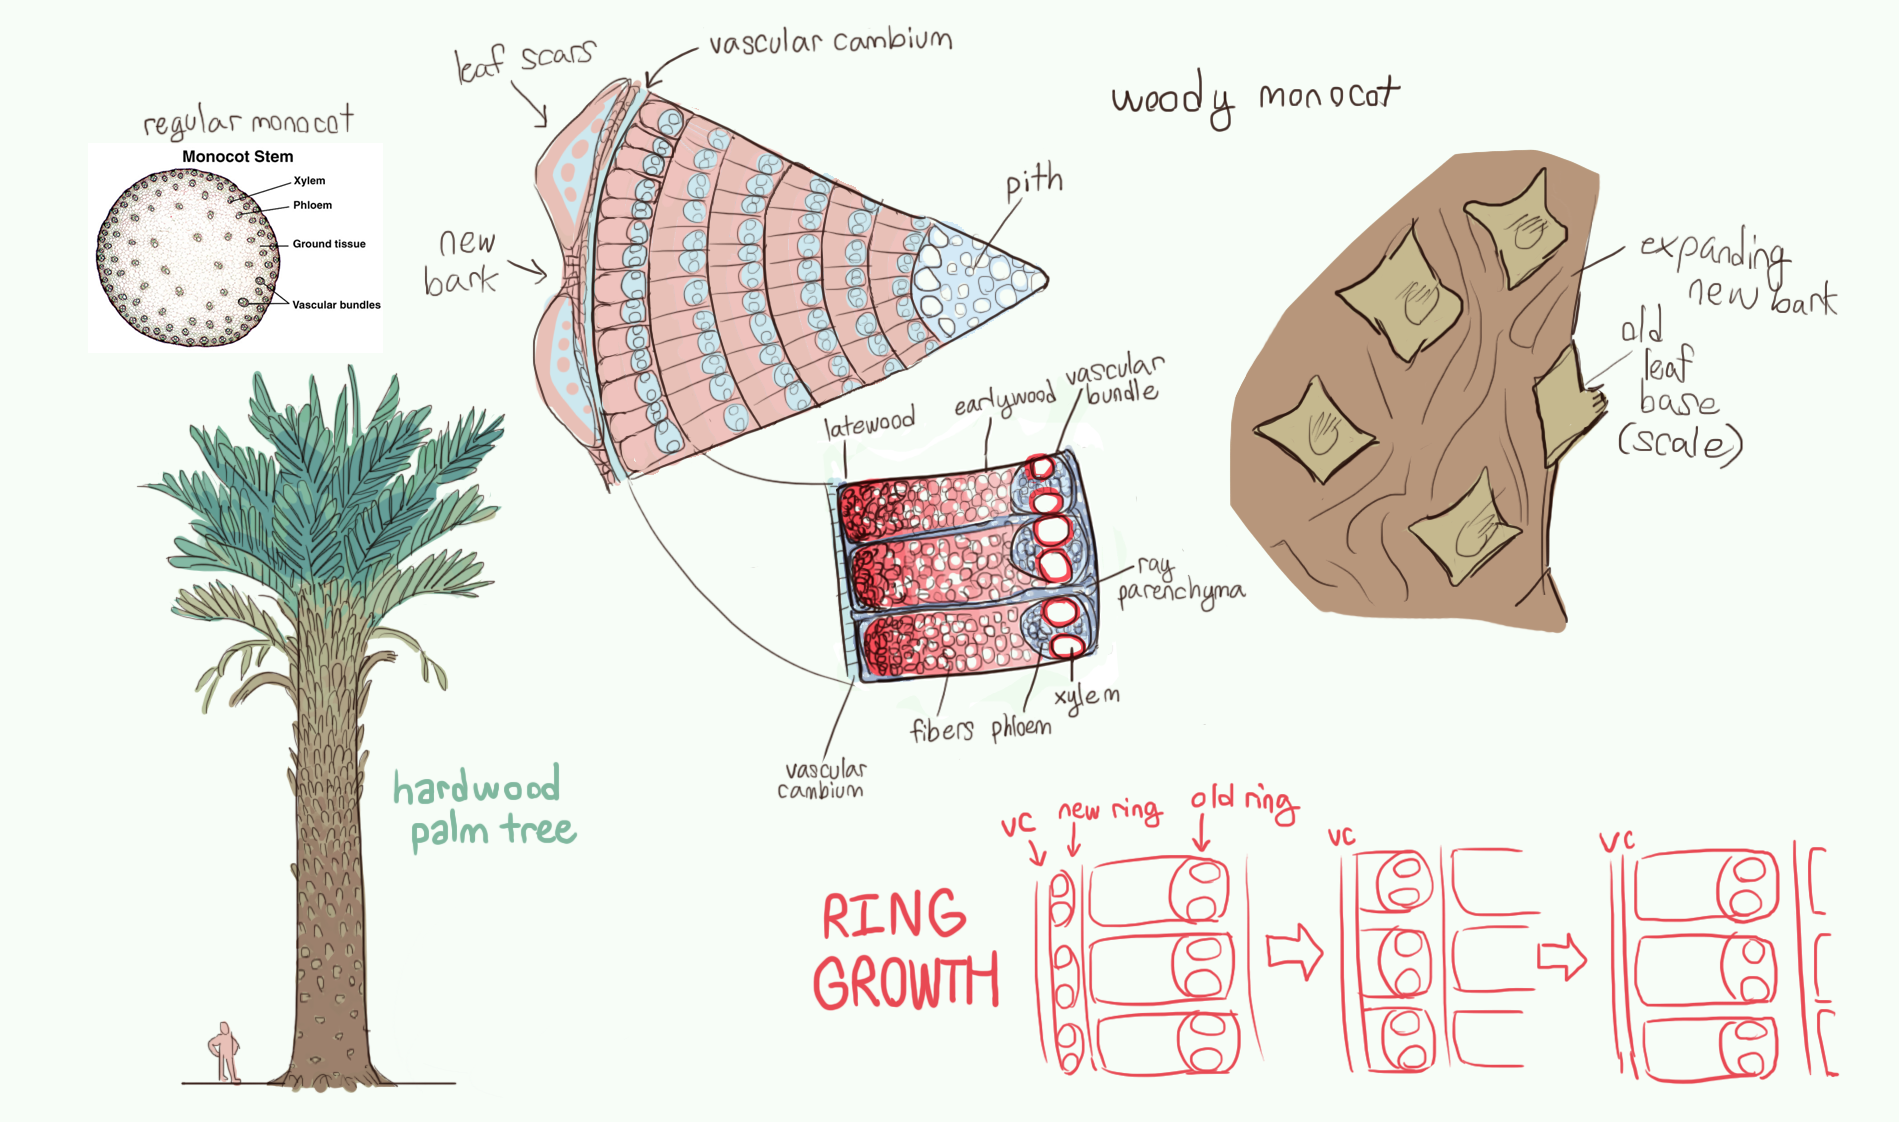 regular monocot
Monocot Stem
Xylem
Phloem
Ground tissue
Vascular bundles
leaf scars
vascular cambium
new
bark
pith
woody monocot
expanding
new bark
old
leaf
base
(scale)
latewood
earlywood
vascular
bundle
ray
parenchyma
xylem
fibers
phloem
vascular
cambium
hardwood
palm tree
RING
GROWTH
VC
new ring
old ring
VC
VC